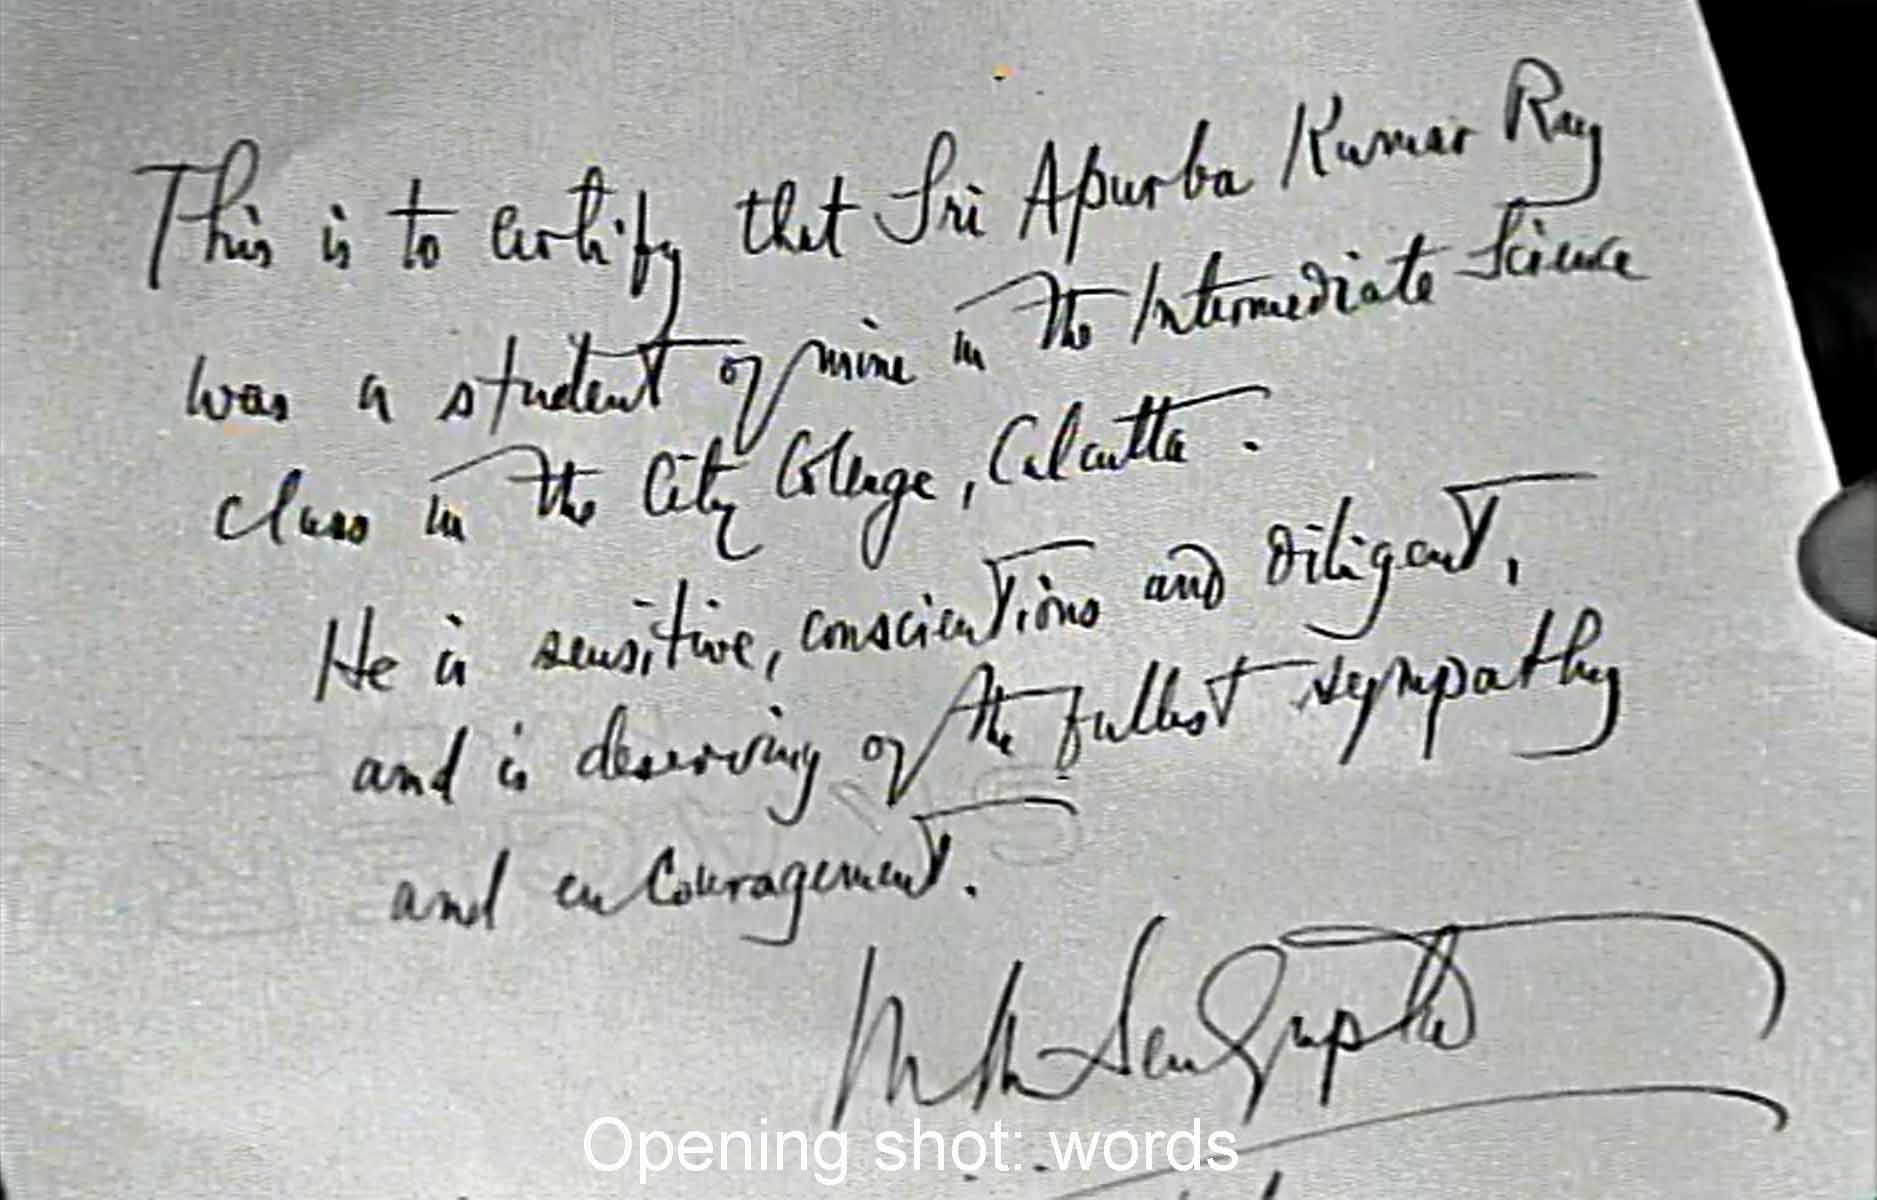 This is to certify that Sri Apurba Kumar Ray
was a student of mine in the Intermediate Science
class in the City College, Calcutta.
He is sensitive, conscientious and diligent,
and is deserving of the fullest sympathy
and encouragement.
Sen Gupta
Opening shot: words